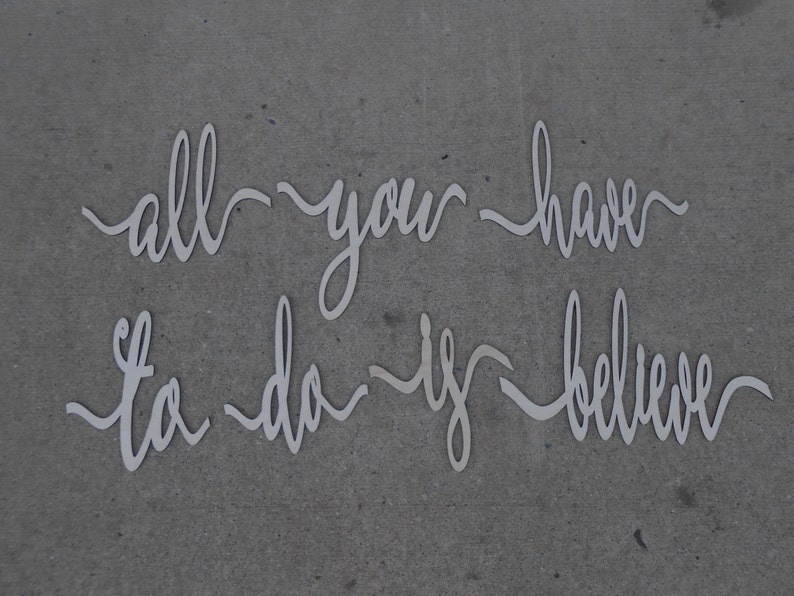 all you have
to do is believe